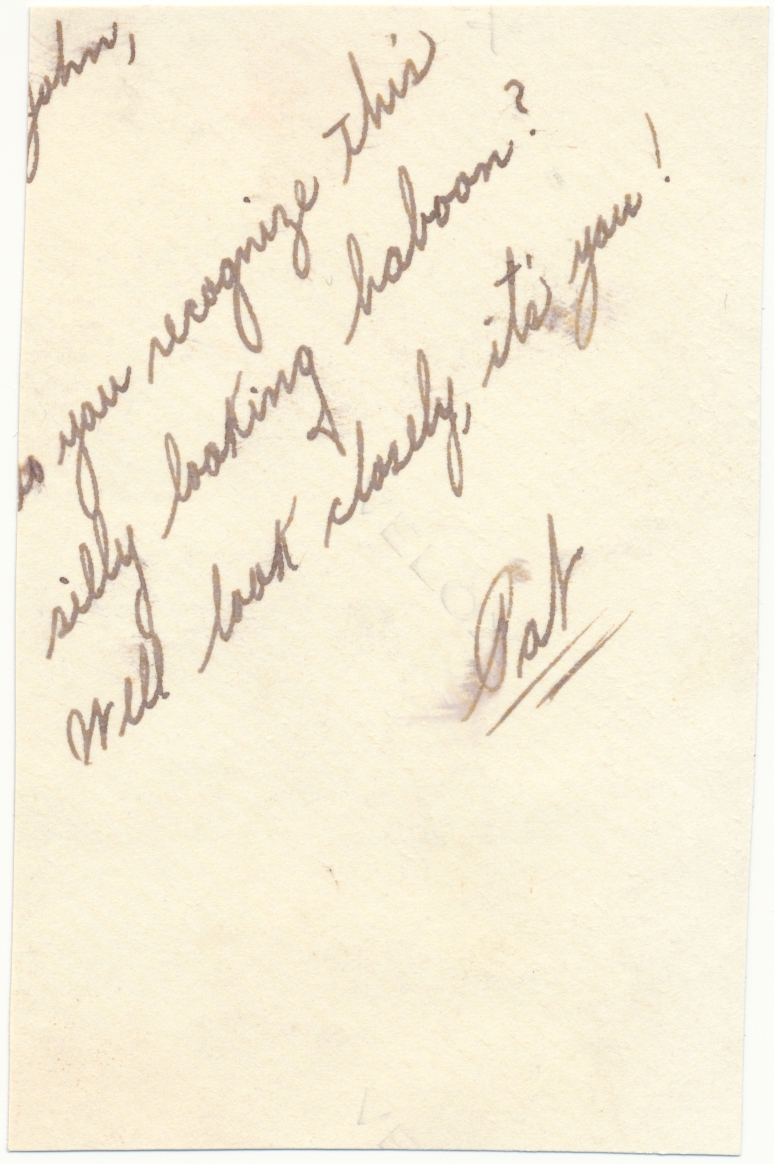 John,
Do you recognize this
silly looking baboon?
Well look closely, it's you!
Pat